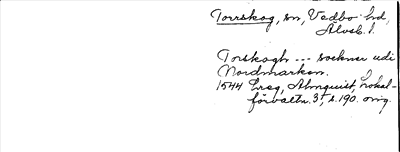 Torrskog, sn, Vedbo hd,
Älvsb. l.
Torskogh --- socknar udi
Nordmarken.
1544 Ereg, Almquist, Lokal-
förvaltn. 3, s. 190. orig.